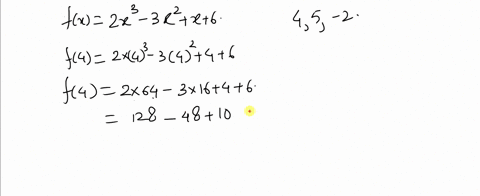 f(x) = 2x³ - 3x² + x + 6. 4, 5, -2.
f(4) = 2×(4)³ - 3(4)² + 4 + 6
f(4) = 2×64 - 3×16 + 4 + 6.
= 128 - 48 + 10